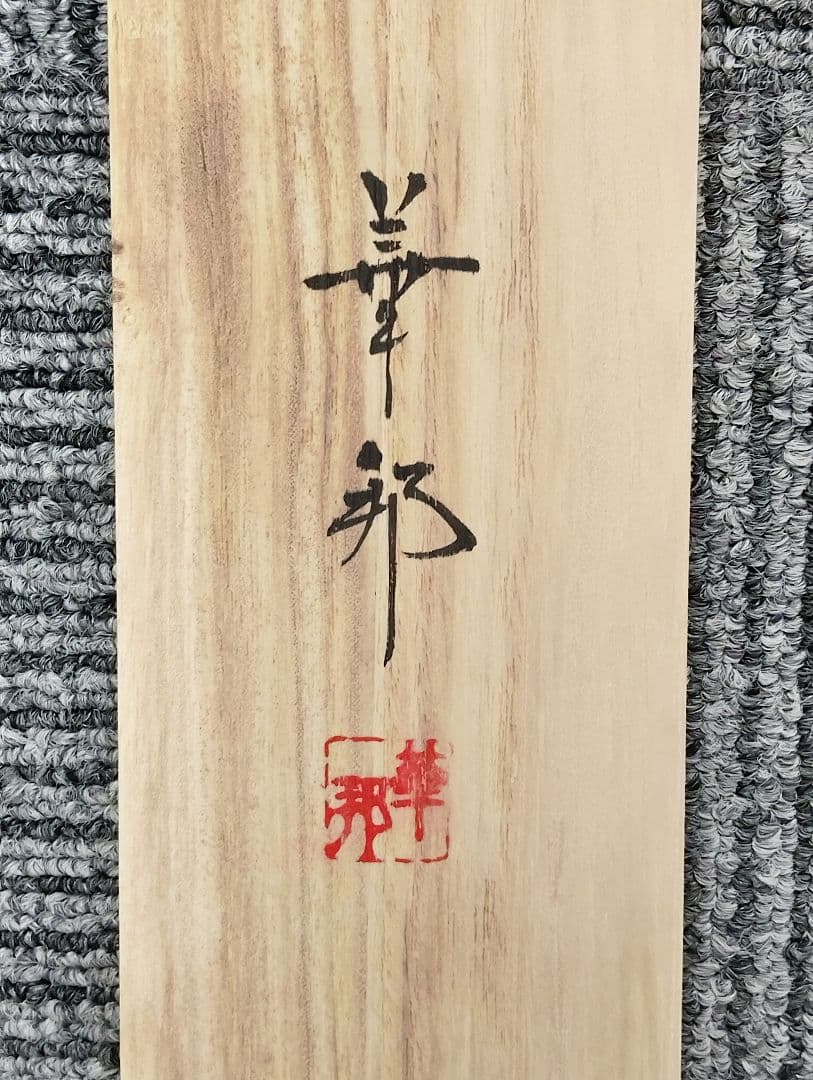 華邦
華邦